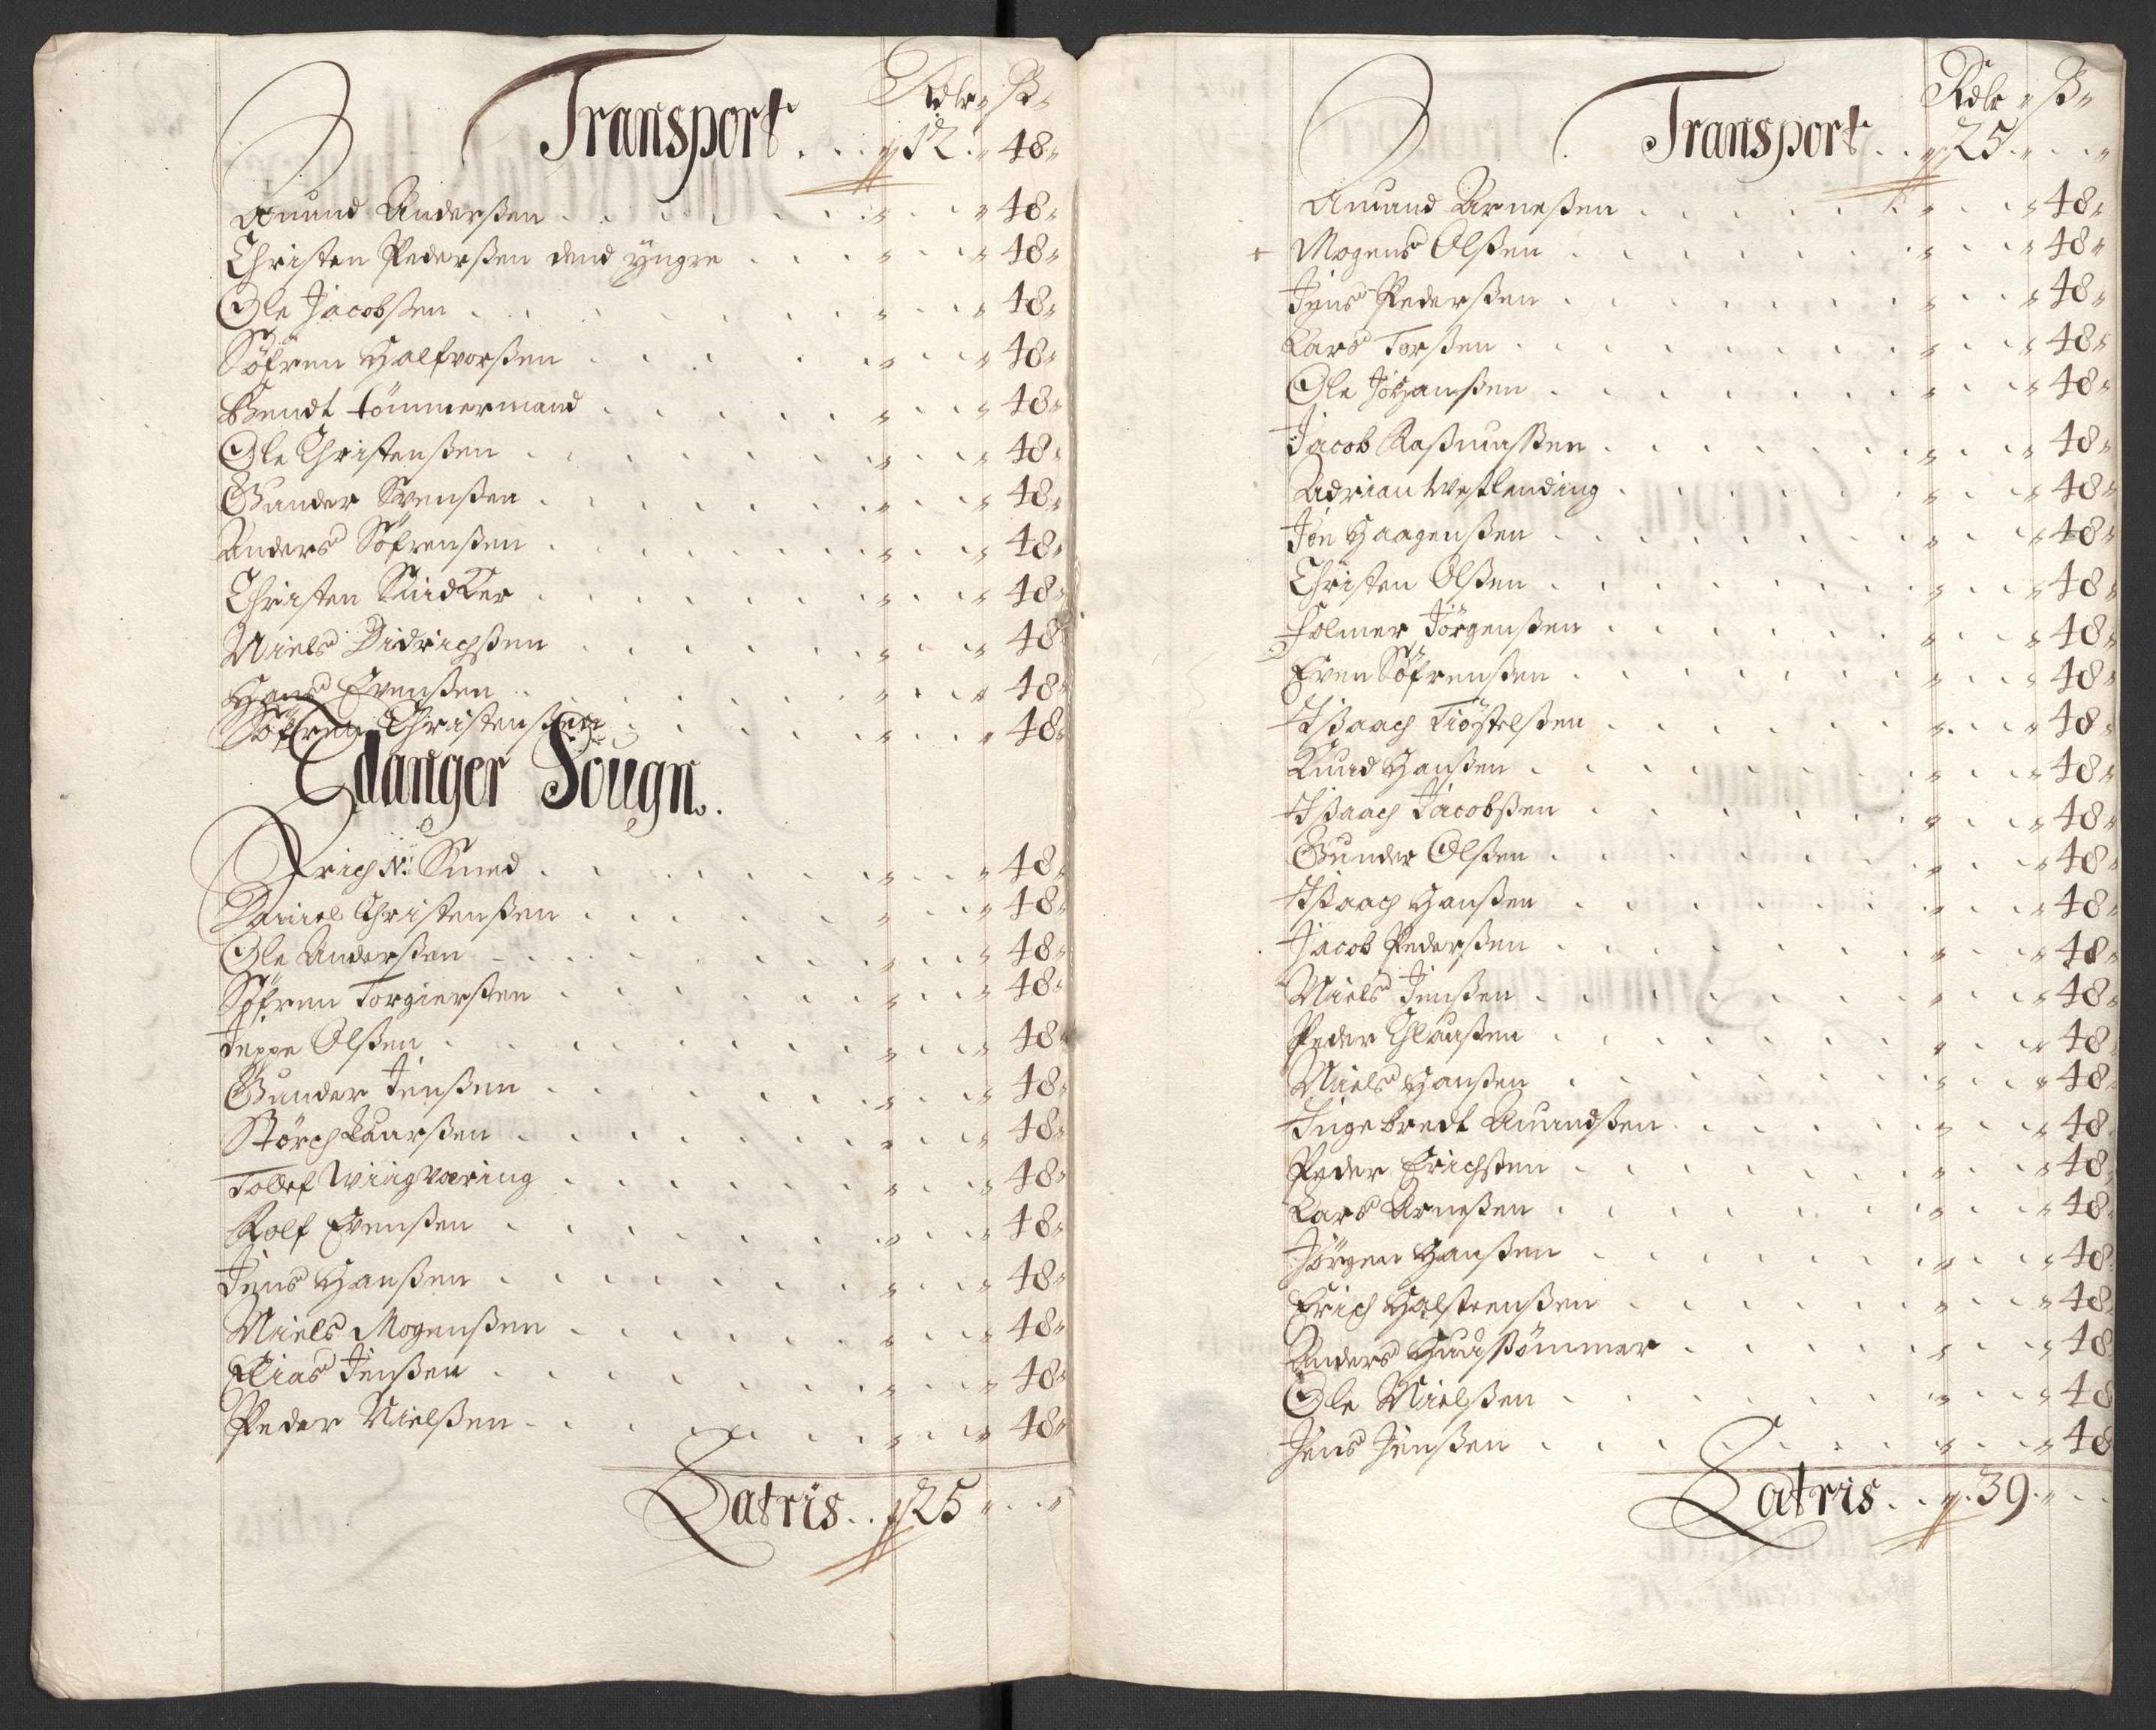 Rdlr " ß "
Transport . . . " 12 . " 48 "
Amund Anderßen . . . " . . " 48 "
Christen Pederßen dend yngre . . . " . . " 48 "
Ole Jacobßen . . . " . . " 48 "
Söfren Halfvorßen . . . " . . " 48 "
Bendt tömmermand . . . " . . " 48 "
Ole Christenßen . . . " . . " 48 "
Gunder Svenßen . . . " . . " 48 "
Anders Söfrenßen . . . " . . " 48 "
Christen Snidker . . . " . . " 48 "
Niels Didrichßen . . . " . . " 48 "
Hans Evenßen . . . " . . " 48 "
Söfren Christenßen . . . " . . " 48 "
Edanger Sougn.
Erich N: Smed . . . " . . " 48 "
Daniel Christenßen . . . " . . " 48 "
Ole Anderßen . . . " . . " 48 "
Söfren Torgierßen . . . " . . " 48 "
Jeppe Olßen . . . " . . " 48 "
Gunder Jenßen . . . " . . " 48 "
Störch Laarßen . . . " . . " 48 "
Tollef Wiigværing . . . " . . " 48 "
Rolf Evenßen . . . " . . " 48 "
Jens Hanßen . . . " . . " 48 "
Niels Mogenßen . . . " . . " 48 "
Elias Jenßen . . . " . . " 48 "
Peder Nielßen . . . " . . " 48 "
Latris . . " 25 " . . "
Rdlr " ß "
Transport . . " 25 . " . . "
Amund Arneßen . . . " . . " 48 "
+ Mogens Olßen . . . " . . " 48 "
Jens Pederßen . . . " . . " 48 "
Lars Torßen . . . " . . " 48 "
Ole Johanßen . . . " . . " 48 "
Jacob Raßmußen . . . " . . " 48 "
Adrian Westlending . . . " . . " 48 "
Jon Haagenßen . . . " . . " 48 "
Christen Olßen . . . " . . " 48 "
Folmer Jörgenßen . . . " . . " 48 "
Even Söfrenßen . . . " . . " 48 "
Ißaach Tiöstelßen . . . " . . " 48 "
Knud Hanßen . . . " . . " 48 "
Ißaach Jacobßen . . . " . . " 48 "
Gunder Olßen . . . " . . " 48 "
Ißaach Hanßen . . . " . . " 48 "
Jacob Pederßen . . . " . . " 48 "
Niels Jenßen . . . " . . " 48 "
Peder Clausßen . . . " . . " 48 "
Niels Hanßen . . . " . . " 48 "
Ingebredt Amundßen . . . " . . " 48
Peder Erichßen . . . " . . " 48 "
Lars Arneßen . . . " . . " 48 "
Jörgen Hanßen . . . " . . " 48 "
Erich Halsteenßen . . . " . . " 48
Anders . . . " . . " 48
Ole Nielßen . . . " . . " 48
Jens Jenßen . . . " . . " 48
Latris . . " 39 . " . .